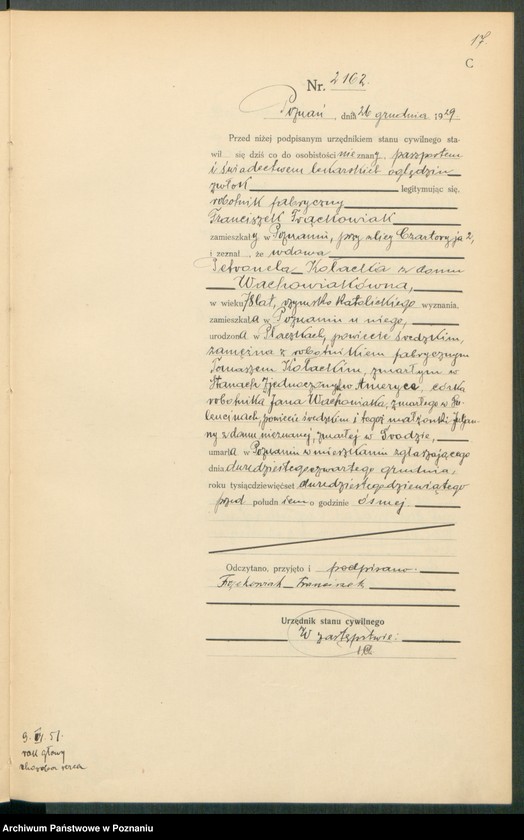 17.
C
Nr. 2162.
Poznań, dnia 26 grudnia 1929
Przed niżej podpisanym urzędnikiem stanu cywilnego sta-
wił się dziś co do osobistości nie znany, paszportem
i świadectwem lekarskich oględzin
zwłok legitymując się,
robotnik fabryczny
Franciszek Frąckowiak
zamieszkały w Poznaniu, przy ulicy Czartorja 2,
i zeznał, że wdowa
Petronela Kołacka z domu
Wachowiakówna,
w wieku 78 lat, rzymsko katolickiego wyznania,
zamieszkała w Poznaniu u niego,
urodzona w Płaczkach, powiecie średzkim,
zamężna z robotnikiem fabrycznym
Tomaszem Kołackim, zmarłym w
Stanach Zjednoczonych w Ameryce, córka
robotnika Jana Wachowiaka, zmarłego w
powiecie średzkim i tegoż małżonki
z domu nieznanej, zmarłej w Środzie,
umarła w Poznaniu w mieszkaniu zgłaszającego
dnia dwudziestego czwartego grudnia,
roku tysiącdziewięćset dwudziestego dziewiątego
przed południem o godzinie ósmej.
Odczytano, przyjęto i podpisano.
Frąckowiak Franciszek
Urzędnik stanu cywilnego
W zastępstwie:
9. 51.
rak głowy
choroba serca
Archiwum Państwowe w Poznaniu